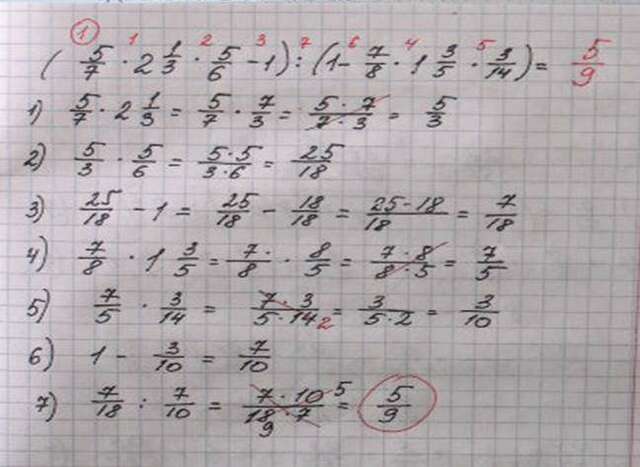 ①
( 5/7 ·¹ 2 1/3 ·² 5/6 -³ 1) :⁷ (1 -⁶ 7/8 ·⁴ 1 3/5 ·⁵ 3/14) = 5/9
1) 5/7 · 2 1/3 = 5/7 · 7/3 = 5·7/7·3 = 5/3
2) 5/3 · 5/6 = 5·5/3·6 = 25/18
3) 25/18 - 1 = 25/18 - 18/18 = 25-18/18 = 7/18
4) 7/8 · 1 3/5 = 7·/8 · 8/5 = 7·8/8·5 = 7/5
5) 7/5 · 3/14 = 7·3/5·14 2 = 3/5·2 = 3/10
6) 1 - 3/10 = 7/10
7) 7/18 : 7/10 = 7·10 5/18·7 9 = 5/9